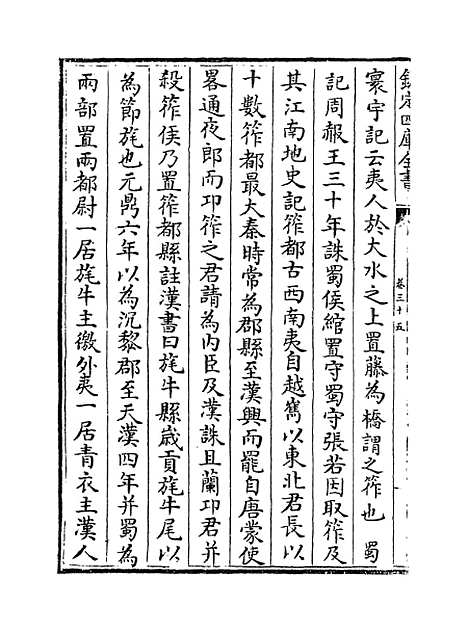 欽定四庫全書
卷三十五
寰宇記云夷人於大水之上置藤為橋謂之筰也 蜀
記周赧王三十年誅蜀侯綰置守蜀守張若因取筰及
其江南地史記筰都古西南夷自越嶲以東北君長以
十數筰都最大秦時常為郡縣至漢興而罷自唐蒙使
畧通夜郎而卭筰之君請為内臣及漢誅且蘭卭君并
殺筰侯乃置筰都縣註漢書曰旄牛縣歲貢旄牛尾以
為節旄也元鼎六年以為沉黎郡至天漢四年并蜀為
兩部置兩都尉一居旄牛主徼外夷一居青衣主漢人